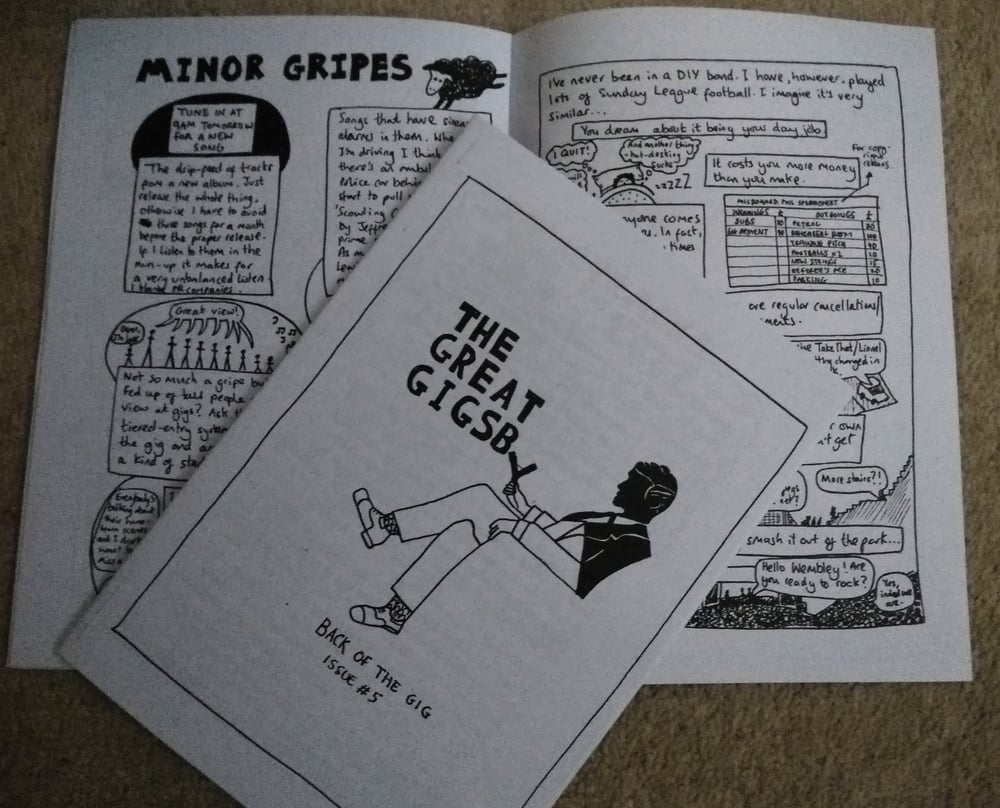 MINOR GRIPES
TUNE IN AT
9AM TOMORROW
FOR A NEW
SONG
The drip-feed of tracks
from a new album. Just
release the whole thing,
otherwise I have to avoid
three songs for a month
before the proper release.
If I listen to them in the
run-up it makes for
a very unbalanced listen.
I blame PR companies.
Songs that have
alarms in them.
I'm driving I think
there's an
police car
start to pull
'Scouting
by Jeffre
prime
As m
Lew
Great view!
Not so much a gripe
fed up of tall people
view at gigs? Ask
tiered-entry
the gig and
a kind of
Everybody's
talking about
their home-
town
and I don't
want to
miss
I've never been in a DIY band. I have, however, played
lots of Sunday League football. I imagine it's very
similar...
You dream about it being your day job
I QUIT!
And another thing
-hot-desking
sucks
zzzZZ
It costs you more money
than you make.
For copy-
right
reasons
MICRONARD PHIL SPREADSHEET
INCOMINGS £ OUTGOINGS £
SUBS PETROL
GIG PAYMENT REHEARSAL ROOM
TRAINING PITCH
FOOTBALLS X2
NEW STRINGS
REFEREE'S FEE
PARKING
yone comes
u. In fact,
times
are regular cancellations/
ments.
the Take That/Lionel
changed in
own
t get
More stairs?!
smash it out of the park...
Hello Wembley! Are
you ready to rock?
Yes,
indeed we
are.
THE
GREAT
GIGSBY
BACK OF THE GIG
ISSUE #5